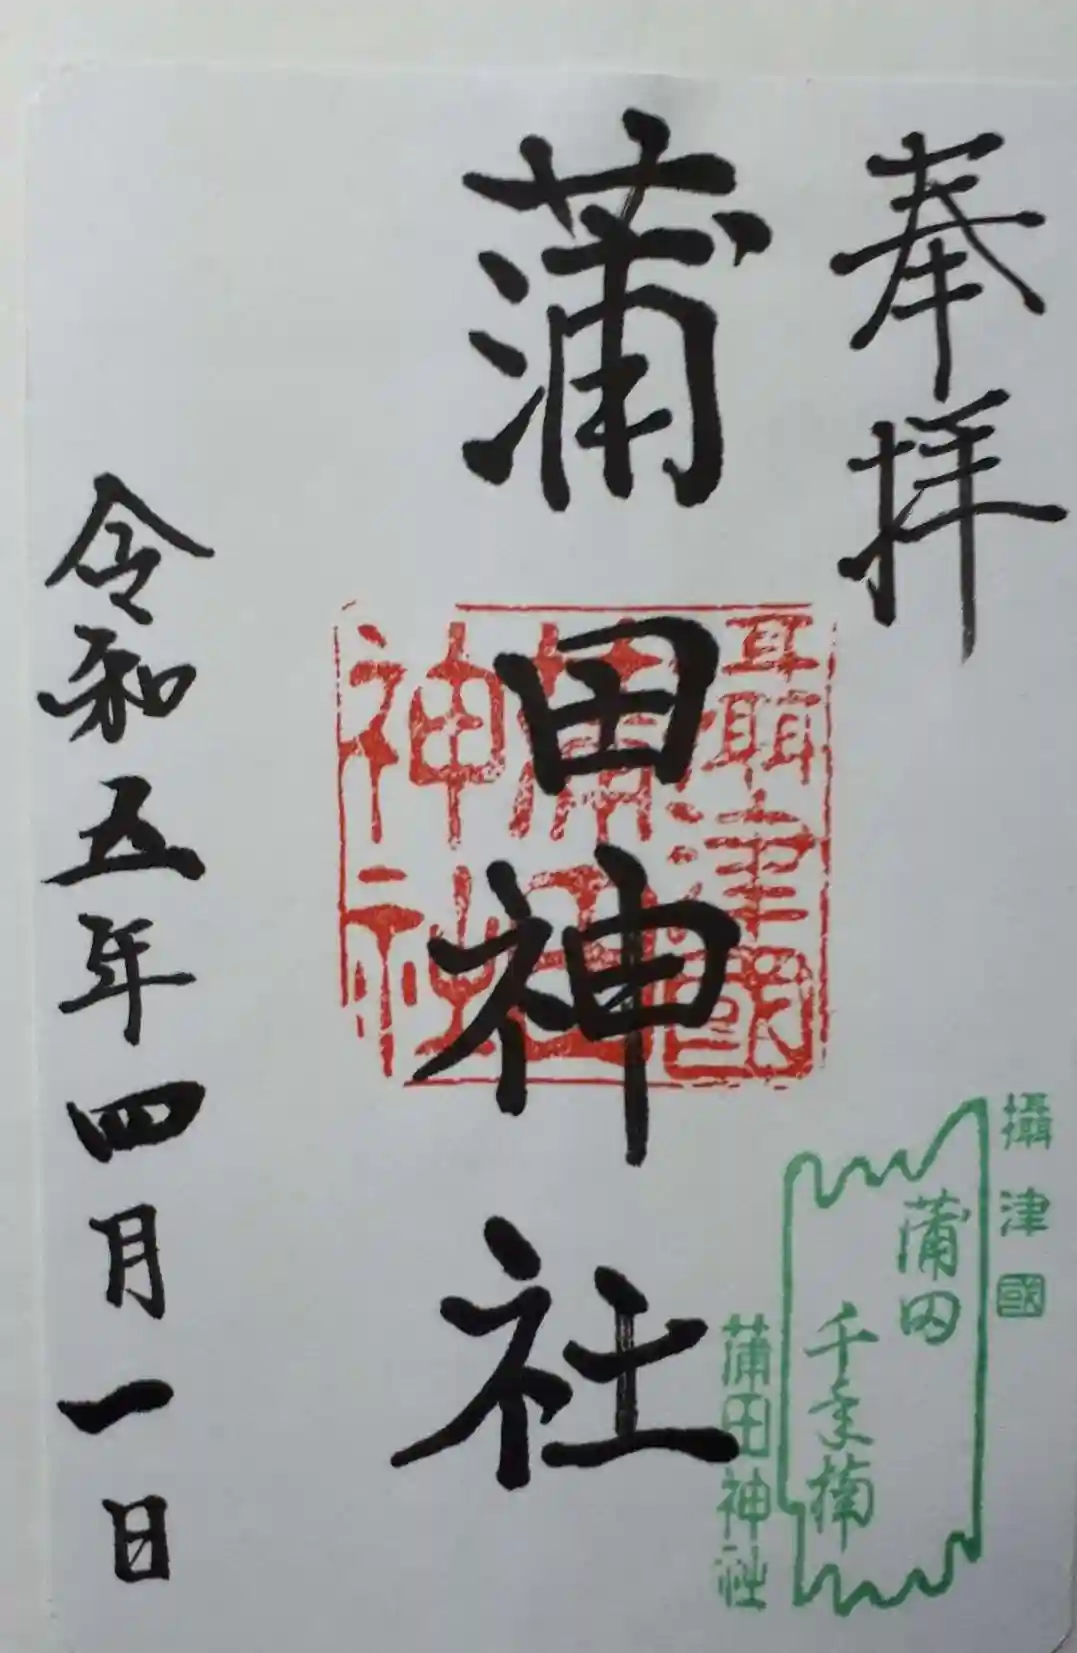 奉拝
蒲田神社
攝津國
蒲田
神社
令和五年四月一日
攝津國
蒲田
千年楠
蒲田神社